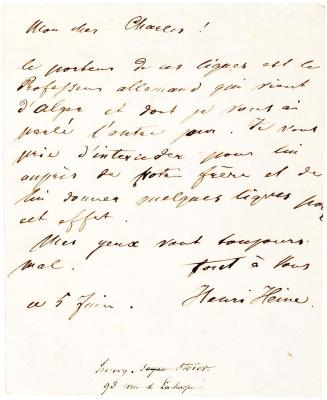 Mon cher Charles !
le porteur de ces lignes est le
Professeur allemand qui vient
d'Alger et dont je vous ai
parlé l'autre jour. Je vous
prie d'interceder pour lui
auprès de votre frère et de
lui donner quelques lignes pour
cet effet.
Mes yeux vont toujours
mal. tout à Vous
ce 5 Juin. Henri Heine.
93 rue de Laharpe